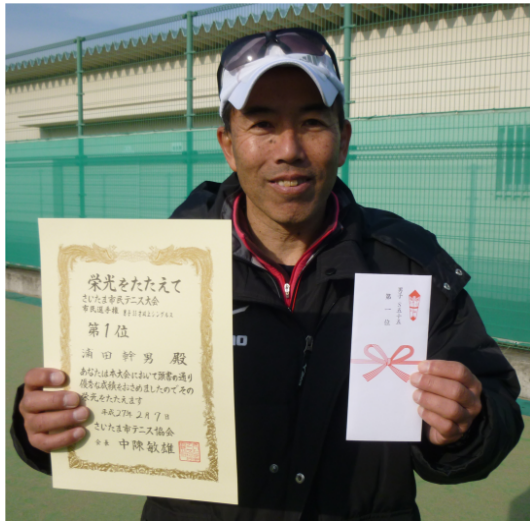 栄光をたたえて
さいたま市民テニス大会
市民選手権
第1位
濱田幹男 殿
あなたは本大会において頭書の通り
優秀な成績をおさめましたのでその
栄光をたたえます
平成27年2月7日
さいたま市テニス協会
会長 中陳敏雄
第一位